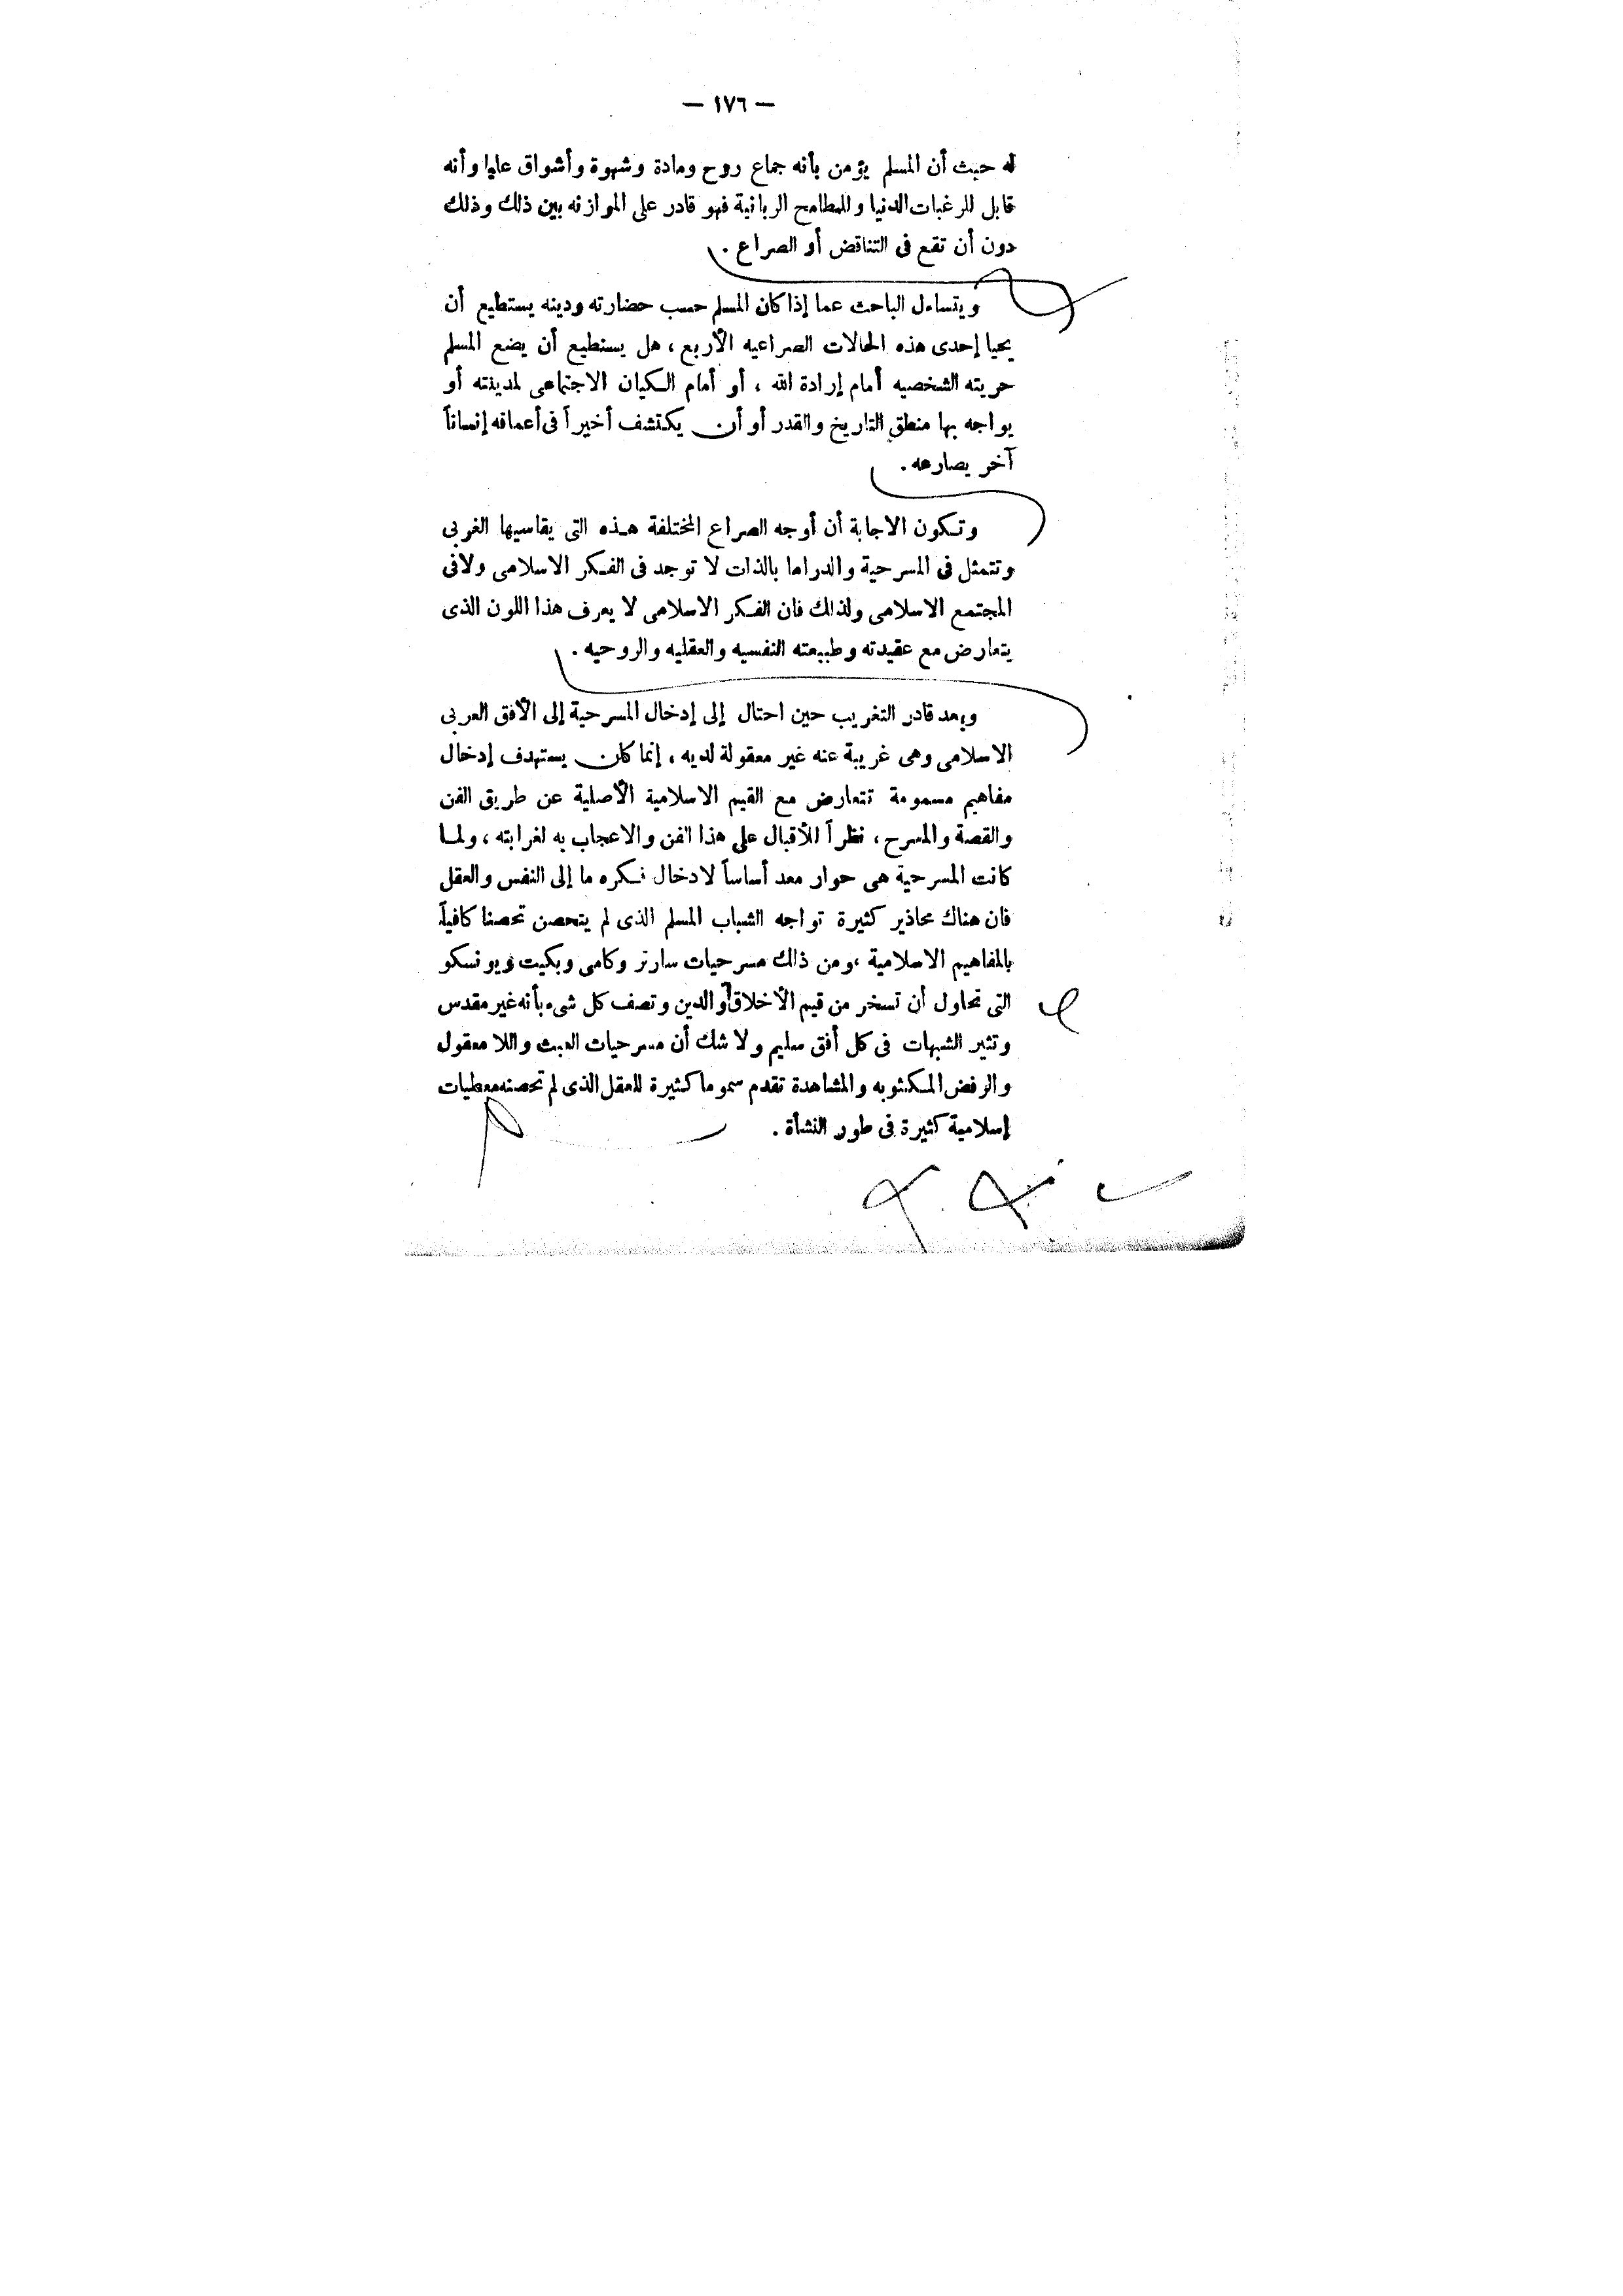 — ١٧٦ —
له حيث أن المسلم يؤمن بأنه جماع روح ومادة وشهوة وأشواق عليا وأنه
قابل للرغبات الدنيا وللمطامح الربانية فهو قادر على الموازنه بين ذلك وذلك
دون أن تقع فى التناقض أو الصراع .
ويتساءل الباحث عما إذا كان المسلم حسب حضارته ودينه يستطيع أن
يحيا إحدى هذه الحالات الصراعيه الأربع ، هل يستطيع أن يضع المسلم
حريته الشخصيه أمام إرادة الله ، أو أمام الكيان الاجتماعى لمدينته أو
يواجه بها منطق التاريخ والقدر أو أن يكتشف أخيراً فى أعماقه إنساناً
آخر يصارعه .
وتكون الاجابة أن أوجه الصراع المختلفة هذه التى يقاسيها الغربى
وتتمثل فى المسرحية والدراما بالذات لا توجد فى الفكر الاسلامى ولا فى
المجتمع الاسلامى ولذلك فان الفكر الاسلامى لا يعرف هذا اللون الذى
يتعارض مع عقيدته وطبيعته النفسيه والعقليه والروحيه .
وبعد قادر التغريب حين احتال إلى إدخال المسرحية إلى الأفق العربى
الاسلامى وهى غريبة عنه غير معقولة لديه ، إنما كان يستهدف إدخال
مفاهيم مسمومة تتعارض مع القيم الاسلامية الأصلية عن طريق الفن
والقصة والمسرح ، نظراً للأقبال على هذا الفن والاعجاب به لغرابته ، ولما
كانت المسرحية هى حوار معد أساساً لادخال فكره ما إلى النفس والعقل
فان هناك محاذير كثيرة تواجه الشباب المسلم الذى لم يتحصن تحصنا كافياً
بالمفاهيم الاسلامية ، ومن ذلك مسرحيات سارتر وكامى وبكيت ويونسكو
التى تحاول أن تسخر من قيم الأخلاق والدين وتصف كل شىء بأنه غير مقدس
وتثير الشبهات فى كل أفق سليم ولا شك أن مسرحيات العبث واللا معقول
والرفض المكتوبه والمشاهدة تقدم سموما كثيرة للعقل الذى لم تحصنه معطيات
إسلامية كثيرة فى طور النشأة .